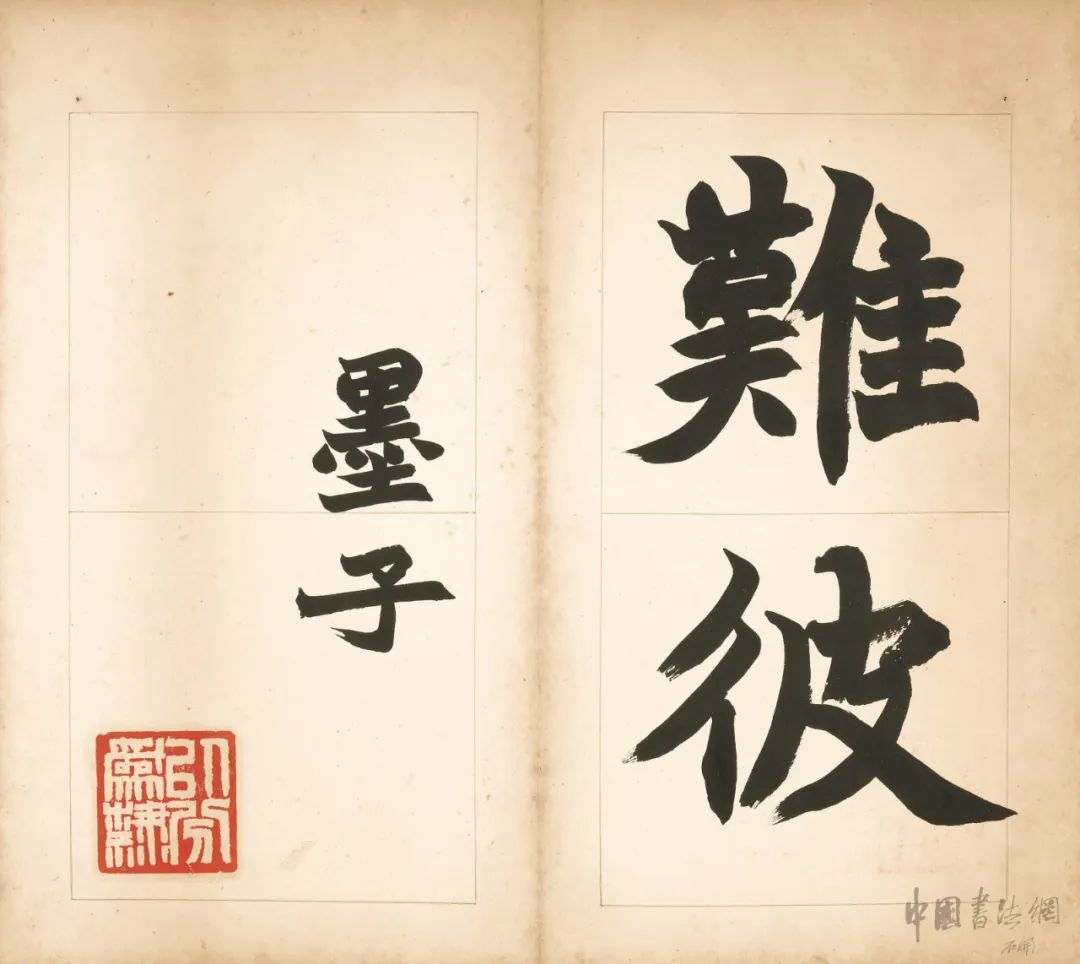 難彼
墨子
中國書法網